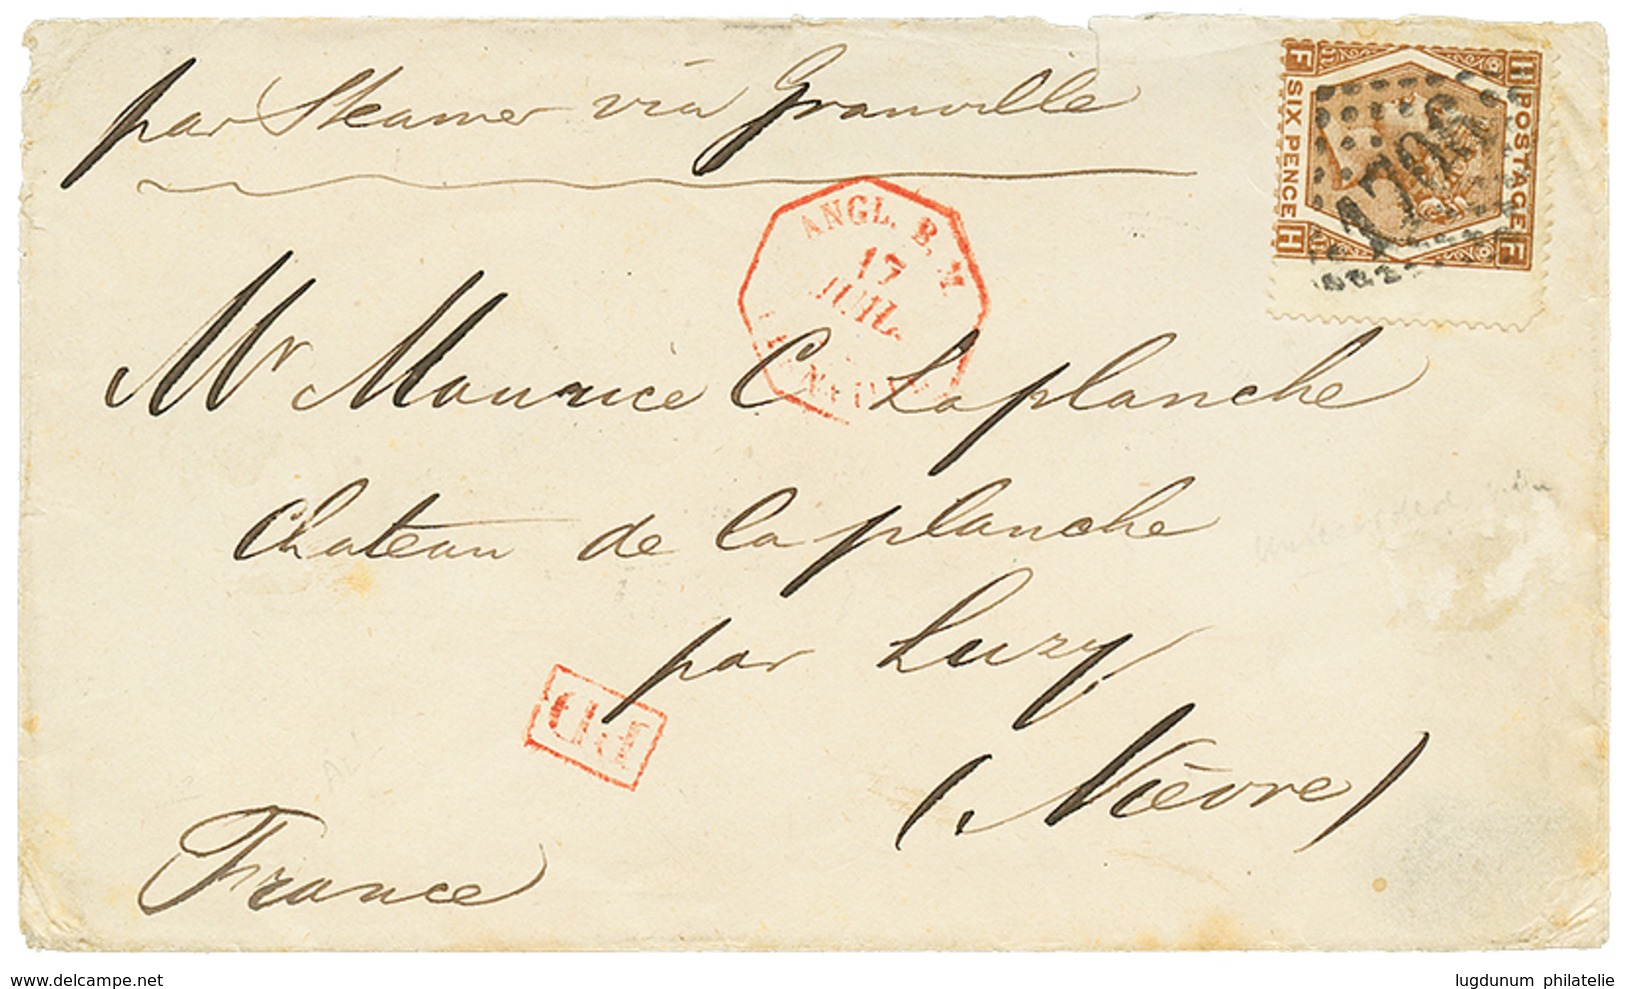 par Steamer via Granville
H POSTAGE F
F SIX PENCE H
1706
ANGL. B. M
17
JUIL.
Mr Maurice C Laplanche
Chateau de Laplanche
par Luzy
PD
(Nièvre)
France
delcampe.net
lugdunum philatelie